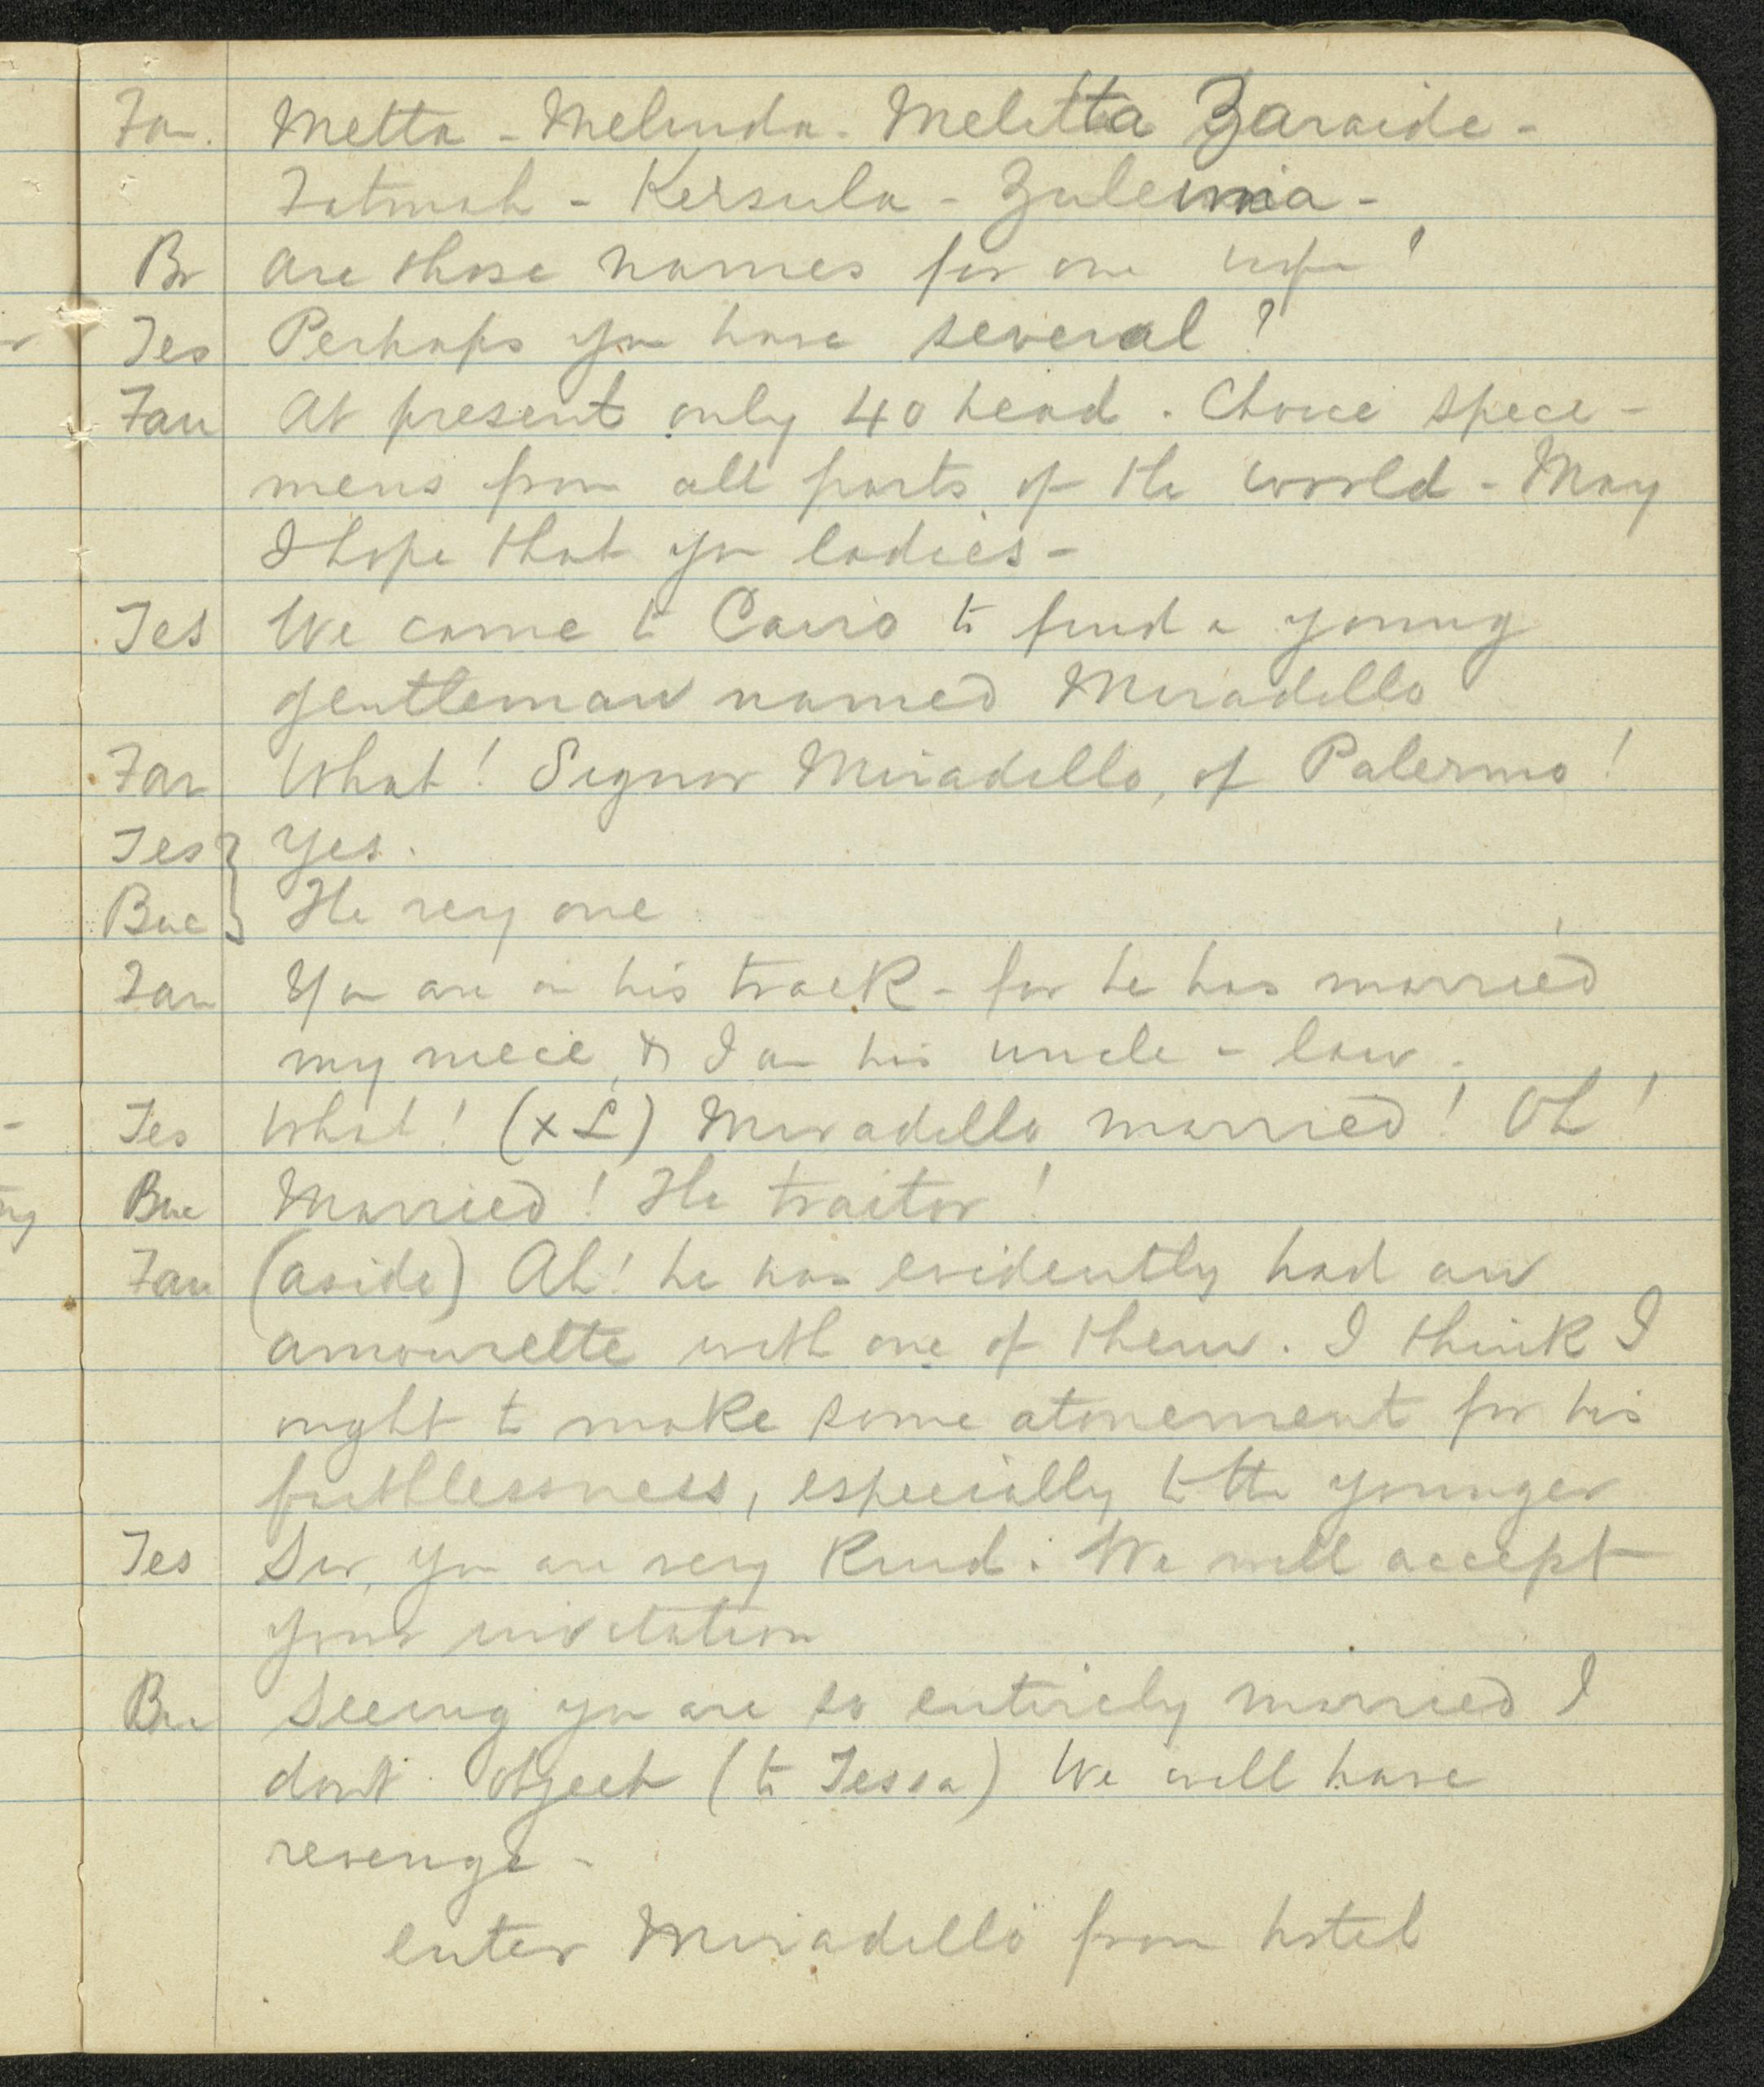 Fan. Metta - Melinda - Melitta Zaraide -
Fatimah - Kersula - Zuleima -
Br Are those names for one wife?
Tes Perhaps you have several?
Fan At present only 40 head. Choice speci-
mens from all parts of the world - May
I hope that you ladies -
Tes We come to Cairo to find a young
gentleman named Miradillo
Fan What! Signor Miradillo, of Palermo!
Tes Yes.
Buc The very one
Fan You are on his track - for he has married
my niece, & I am his uncle - law.
Tes What! (x L) Miradillo married! Oh!
Buc Married! The traitor!
Fan (aside) Ah! he has evidently had an
amourette with one of them. I think I
ought to make some atonement for his
faithlessness, especially to the younger
Tes Sir, you are very kind. We will accept
your invitation
Bu Seeing you are so entirely married I
dont object (to Tessa) We will have
revenge -
enter Miradillo from hotel